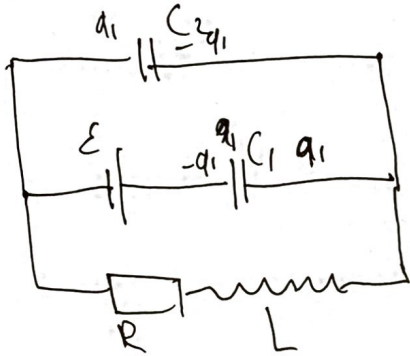 q₁ C₂ -q₁
ε -q₁ q₁ C₁ q₁
R L